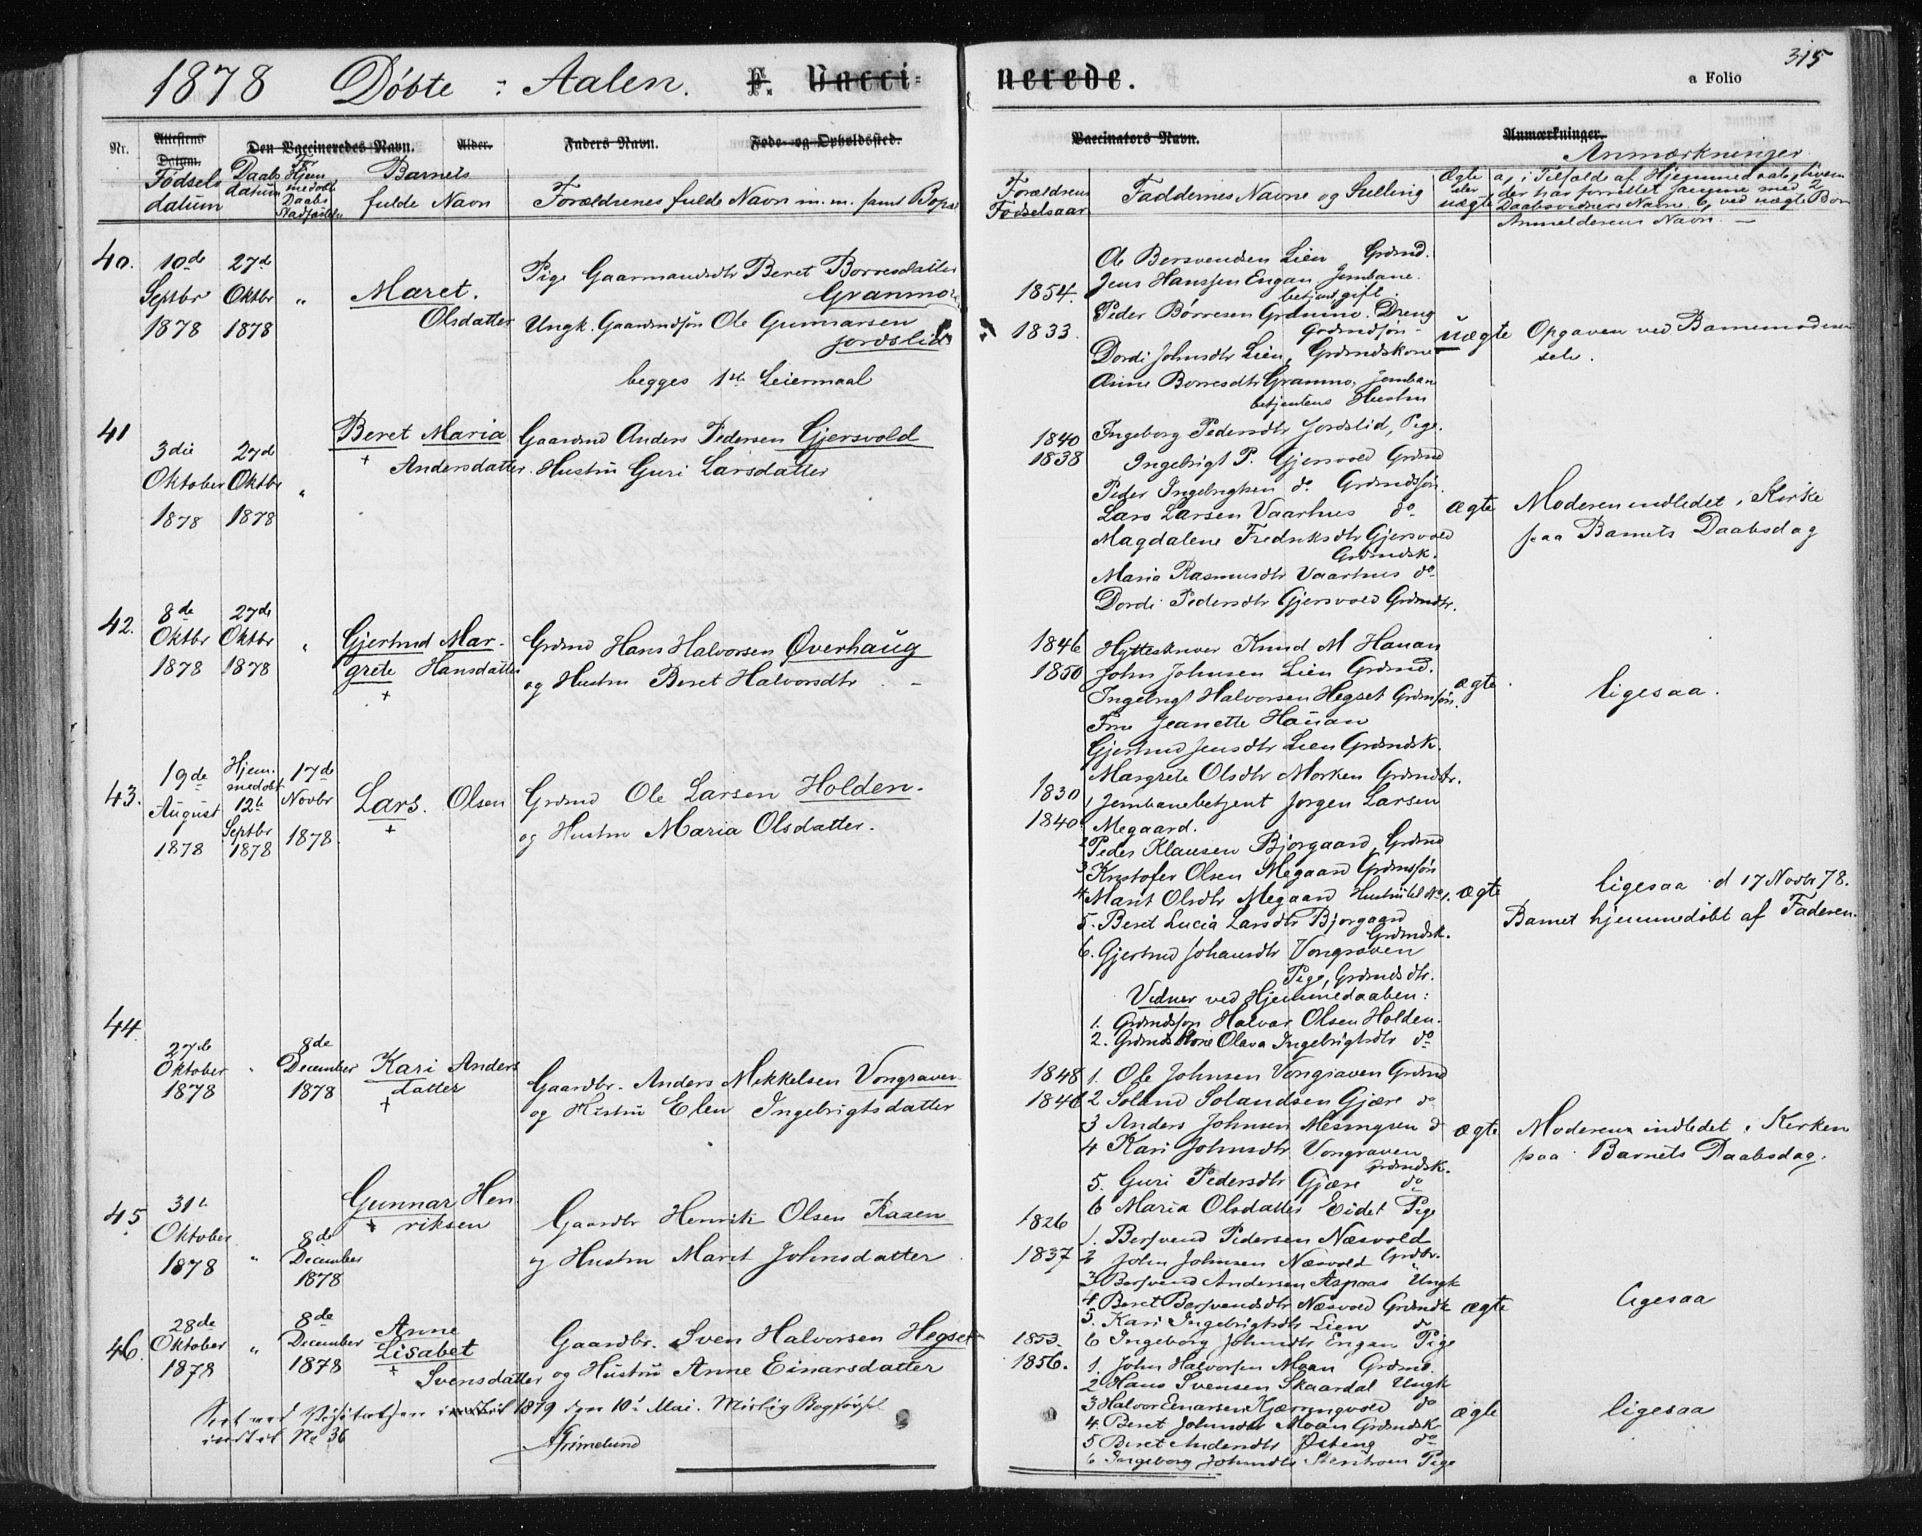 1878 Døbte : Aalen. F. Vacci-
nerede.
315
a Folio
Nr. Attestens Datum. Den Vaccineredes Navn. Alder. Faders Navn. Føde- og Opholdssted.
Vaccinators Navn. Anmærkninger.
Fødsels datum
Daabs datum
For Hjemmedøbte Daabs Stadfæstelse
Barnets fulde Navn
Forældrenes fulde Navn m. m. samt Bopæl
Forældrenes Fødselsaar
Faddernes Navne og Stilling
Ægte eller uægte
Anmærkninger.
a, i Tilfælde af Hjemmedaab, hvem
der har forrettet samme med 2
Daabsvidners Navne. b, ved uægte Børn
Anmelderens Navn. —
40.
10de Septbr 1878
27de Oktbr 1878
"
Maret.
Olsdatter
Pige Gaarmandsdtr Beret Borresdatter
Granmo
Ungk. Gaardmdsøn Ole Gunnarsen
Jordslid
begges 1ste Leiermaal
1854.
1833.
Ole Bersvendsen Lien Grdmd.
Jens Hanssen Engan Jernbane
betjent gift.
Peder Børresen Granmo. Dreng
Grdmdsøn.
Dordi Johnsdtr Lien, Grdmdskone
Anne Borresdtr Granmo, Jernban
betjentens Hustru
Ingeborg Pedersdtr Jordslid, Pige.
uægte
Opgaven ved Barnemoderen
selv.
41
3die Oktober 1878
27de Oktbr 1878
"
Beret Maria
+ Andersdatter.
Gaardmd Anders Pedersen Gjersvold
Hustru Guri Larsdatter
1840
1838
Ingebrigt P. Gjersvold Grdmd
Peder Ingebrigtsen do Grdmdsøn.
Lars Larsen Vaarhus do
Magdalene Fredriksdtr Gjersvold
Grdmdsk.
Maria Rasmusdtr Vaarhus do
Dordi Pedersdtr Gjersvold Grdmdtr.
Ægte
Moderen indledet i Kirke
paa Barnets Daabsdag
42.
8de Oktbr 1878
27de Oktbr 1878
"
Gjertrud Mar-
grete Hansdatter
+
Grdmd Hans Halvorsen Øverhaug
og Hustru Beret Halvorsdtr. —
1846
1850
Hytteskriver Knud M Hauan
John Johnsen Lien Grdmd.
Ingebrigt Halvorsen Hegset Grdmsøn.
Frue Jeanette Hauan
Gjertrud Jensdtr Lien Grdmdsk.
Margrete Olsdtr Morken Grdmdtr.
ægte
ligesaa.
43.
19de August 1878
Hjem-
medøbt
12te Septbr 1878
17de Novbr 1878.
Lars. Olsen
+
Grdmd Ole Larsen Holden.
og Hustru Maria Olsdatter.
1830
1840
1 Jernbanebetjent Jørgen Larsen
Megaard.
2 Peder Klausen Bjorgaard, Grdmd
3 Kristofer Olsen Megaard Grdmdsøn
4. Marit Olsdtr Megaard Hustru til No 1.
5. Beret Lucia Larsdtr Bjorgaard
Grdmdsk.
6. Gjertrud Johansdtr Vongraven
Pige, Grdmdsdtr.
Vidner ved Hjemmedaaben:
1. Grdmdsøn Halvar Olsen Holden.
2. Grdmdskone Olava Ingebrigtsdtr do
ægte
ligesaa d 17 Novbr 78.
Barnet hjemmedøbt af Faderen.
44.
27de Oktober 1878
"
8de December 1878
Kari Anders
datter
+
Gaardbr. Anders Mikkelsen Vongraven
og Hustru Elen Ingebrigtsdatter
1848
1846
1. Ole Johnsen Vongraven Grdmd
2 Soland Solandsen Gjære do
3 Anders Johnsen do
4 Kari Johnsdtr Vongraven
Grdmdsk.
5. Guri Pedersdtr Gjære do
6 Maria Olsdatter Eidet Pige
ægte
Moderen indledet i Kirken
paa Barnets Daabsdag.
45.
31te Oktober 1878
"
8de December 1878
Gunnar Hen
+ riksen
Gaardbr Henrik Olsen Kaasen
og Hustru Marit Johnsdatter
1826
1837
1. Bersvend Pedersen Næsvold
Grdbr.
2 John Johnsen Næsvold "
3 Bersvend Andersen Aspaas Ungk
4 Beret Bersvendsdtr Næsvold Grdmdk
5. Kari Ingebrigtsdtr Lien do
6 Ingeborg Johnsdtr Engan Pige
ægte
ligesaa
46.
28de Oktober 1878
"
8de December 1878
Anne
Lisabet
+ Svensdatter
Gaardbr. Sven Halvorsen Hegset
og Hustru Anne Einarsdatter
1853.
1856.
1. John Halvorsen Moan Grdmd
2 Hans Svensen Skaardal Ungk
3 Halvor Einarsen Kjærringvold do
4. Beret Johnsdtr Moan Grdmdsk
5 Beret Andersdtr Østeng do
6 Ingeborg Johnsdtr Pige
ægte
ligesaa
Seet ved Visitatsen 1879 den 10de Mai.
indtil No 36
Grimelund